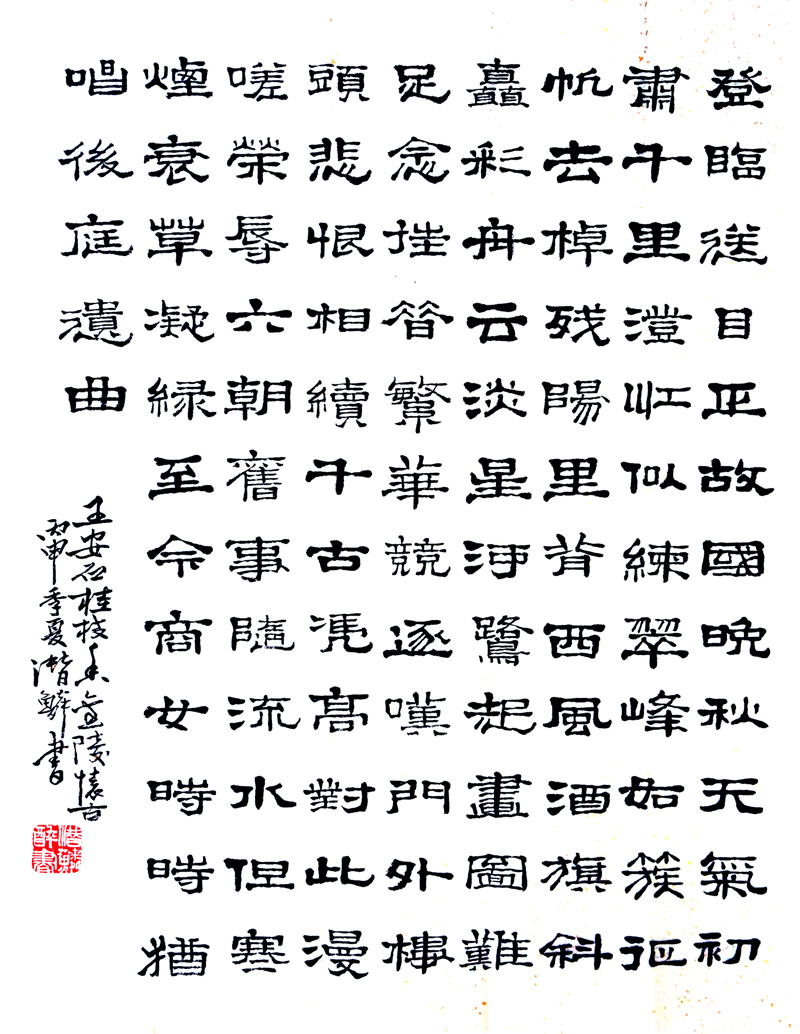 登臨送目正故國晚秋天氣初
肅千里澄江似練翠峰如簇征
帆去棹残陽里背西風酒旗斜
矗彩舟云淡星河鷺起畫圖難
足念往昔繁華競逐嘆門外樓
頭悲恨相續千古凭高對此漫
嗟榮辱六朝舊事隨流水但寒
煙衰草凝緑至今商女時時猶
唱後庭遺曲
王安石桂枝香金陵懷古
丙申季夏潛鱗書